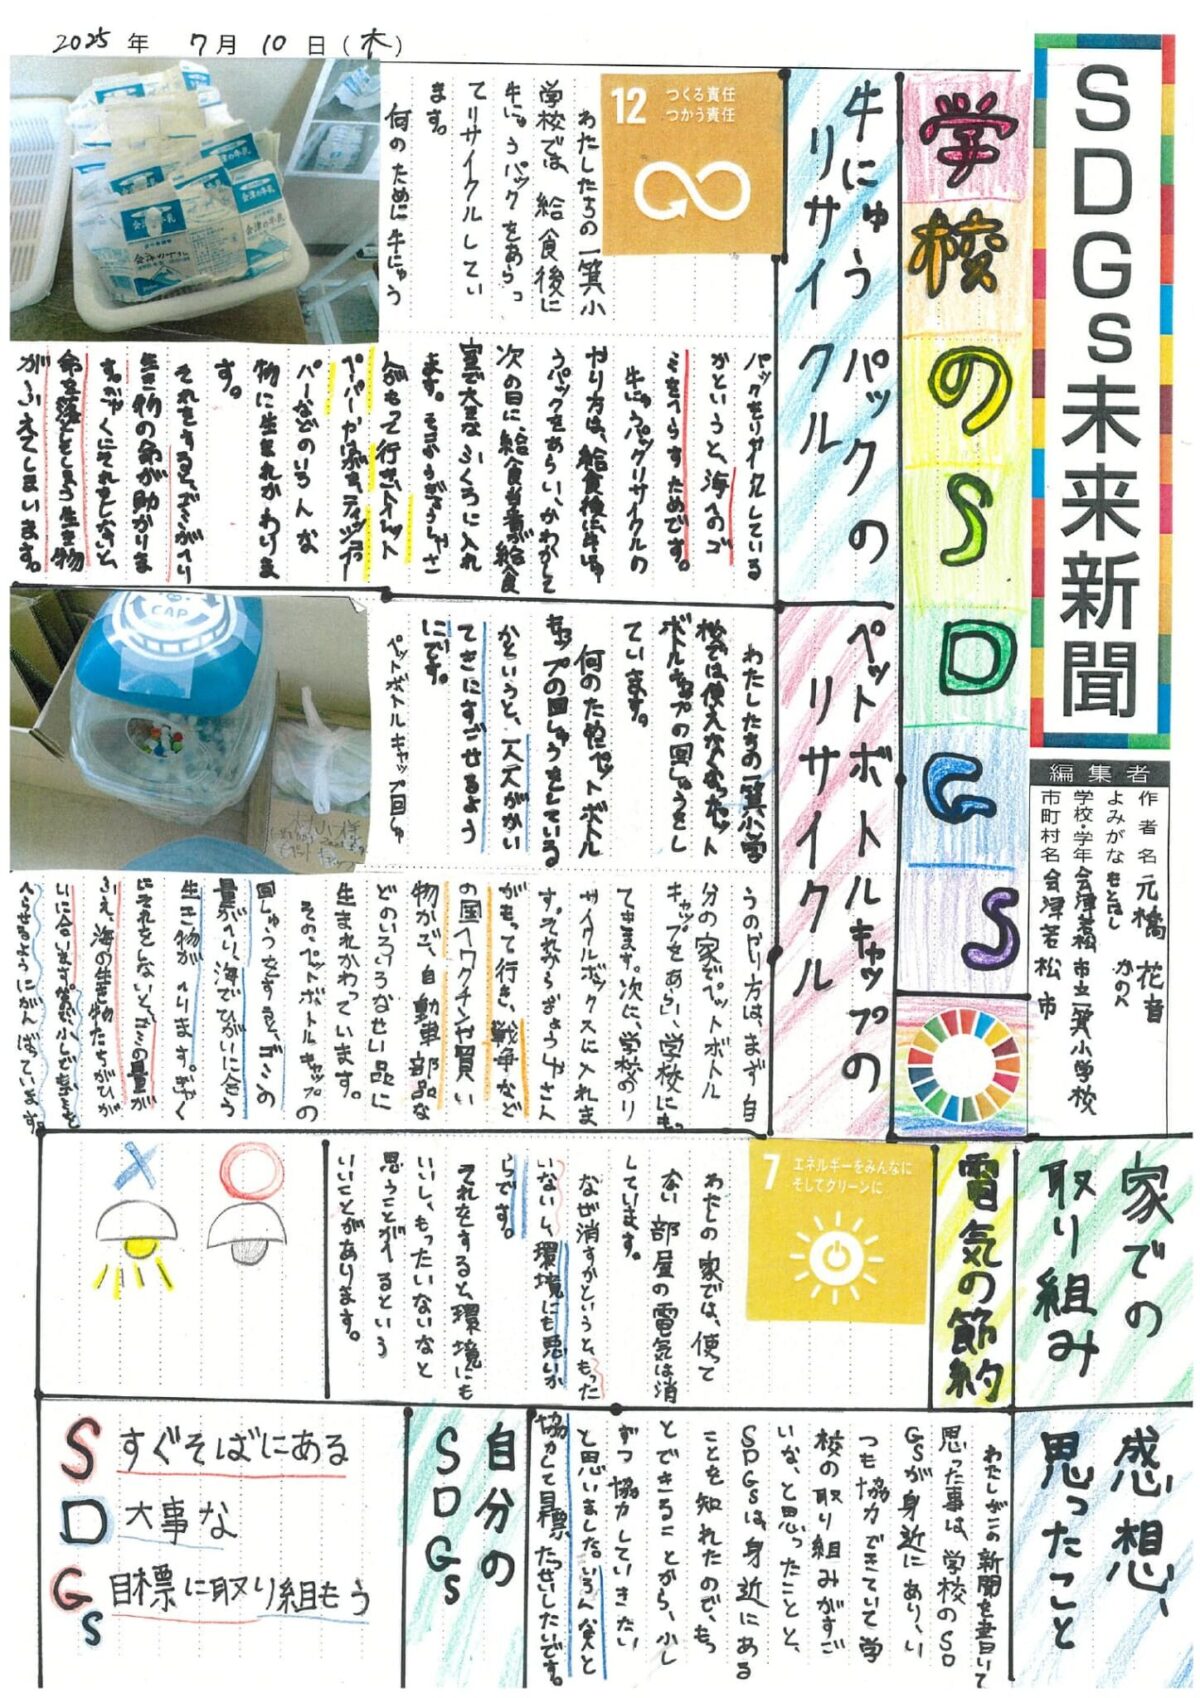 2025年 7月10日(木)
SDGs未来新聞
編集者
作者名 元橋 花音
よみがな もとはし かのん
学校・学年 会津若松市立一箕小学校
市町村名 会津若松市
学校のSDGs
牛にゅうパックの
リサイクル
12 つくる責任
つかう責任
わたしたちの一箕小
学校では、給食後に
牛にゅうパックをあらっ
てリサイクルしてい
ます。
何のために牛にゅう
パックをリサイクルしている
かというと、海へのゴ
ミをへらすためです。
牛にゅうパックリサイクルの
やり方は、給食後に牛にゅ
うパックをあらい、かわかして
次の日に、給食当番が給食
室で大きなふくろに入れ
ます。そこからぎょうしゃさ
んがもって行き、トイレット
ペーパーやはこティッシュ
パーなどのいろんな
物に生まれかわりま
す。
それをすると、ゴミがへり
生き物の命が助かりま
す。ぎゃくにそれをしないと、
命を落としてしまう生き物
がふえてしまいます。
会津の牛乳
ペットボトルキャップの
リサイクル
わたしたちの一箕小学
校では使えなくなったペット
ボトルキャップの回しゅうをし
ています。
何のためにペットボトル
キャップの回しゅうをしている
かというと、一人一人がかい
てきにすごせるよう
にです。
ペットボトルキャップ回しゅ
うのやり方は、まず自
分の家でペットボトル
キャップをあらい、学校にもっ
てきます。次に、学校のリ
サイクルボックスに入れま
す。それからぎょうしゃさん
がもって行き、戦争など
の国へワクチンや買い
物かご、自動車部品な
どのいろいろなせい品に
生まれかわっています。
その、ペットボトルキャップの
回しゅうをすると、ゴミの
量がへり、海でひがいに合う
生き物がへります。ぎゃく
にそれをしないと、ゴミの量が
ふえ、海の生き物たちがひが
いに合います。
へらせるようにがんばっています。
CAP
家での
取り組み
電気の節約
7 エネルギーをみんなに
そしてクリーンに
わたしの家では、使って
ない部屋の電気は消
しています。
なぜ消すかというと、もった
いないし、環境にも悪いか
らです。
それをすると、環境にも
いいし、もったいないなと
思うことがへるという
いいことがあります。
感想、
思ったこと
わたしがこの新聞を書いて
思った事は、学校のSD
GSが身近にあり、い
つも協力できていて学
校の取り組みがすご
いな、と思ったことと、
SDGsは、身近にある
ことを知れたので、もっ
とできることから、少し
ずつ協力していきたい
と思いました。いろんな人と
協力して目標たっせいしたいです。
自分の
SDGs
S すぐそばにある
D 大事な
Gs 目標に取り組もう